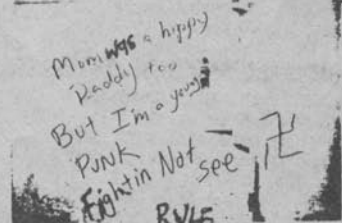 Mom was a hippy
Daddy too
But I'm a young
PUNK
Fightin Not see
RULE